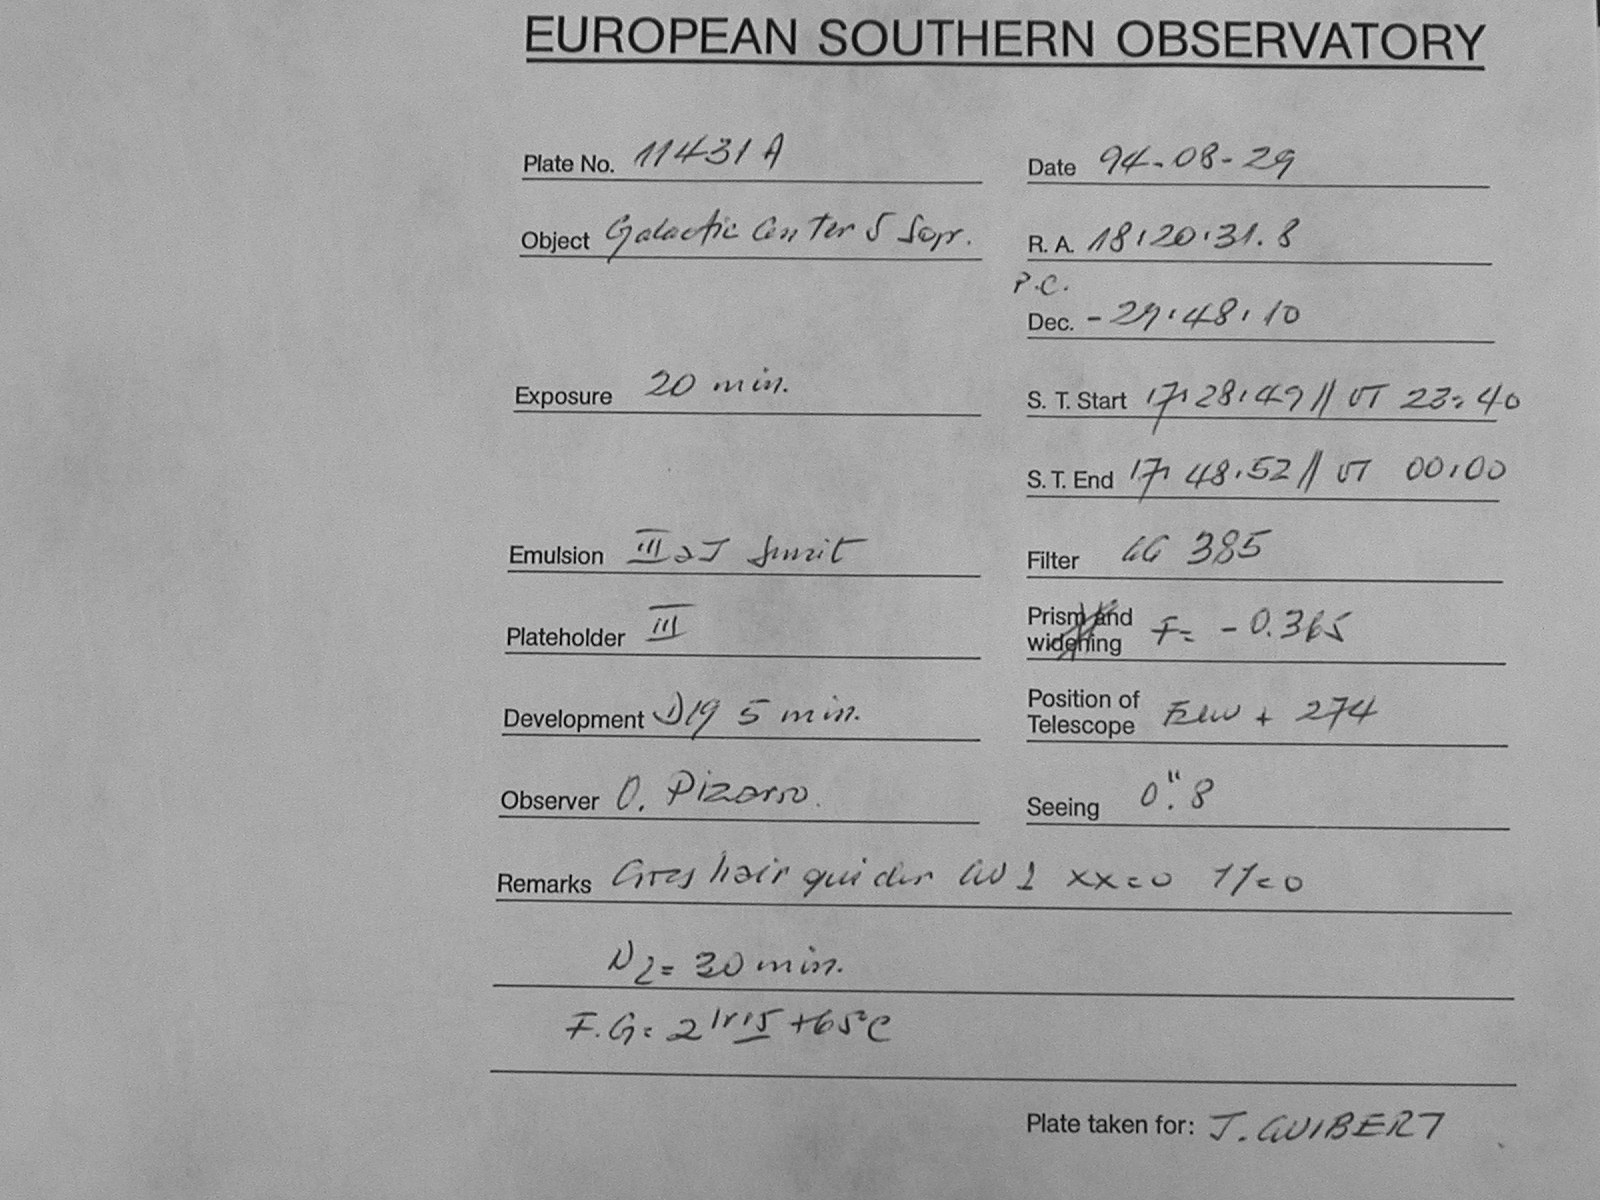 EUROPEAN SOUTHERN OBSERVATORY
Plate No. 11431 A
Date 94-08-29
Object Galactic Center 5
R. A. 18:20:31.8
P.C.
Dec. -29:48:10
Exposure 20 min.
S. T. Start 17:28:49 // UT 23:40
S. T. End 17:48:52 // UT 00:00
Emulsion III aJ
Filter GG 385
Plateholder III
Prism and widening F= -0.365
Development D19 5 min.
Position of Telescope + 274
Observer O. Pizarro.
Seeing 0".8
Remarks hair guider xx=0 YY=0
N2= 30 min.
F.G= +65°C
Plate taken for: J. GUIBERT